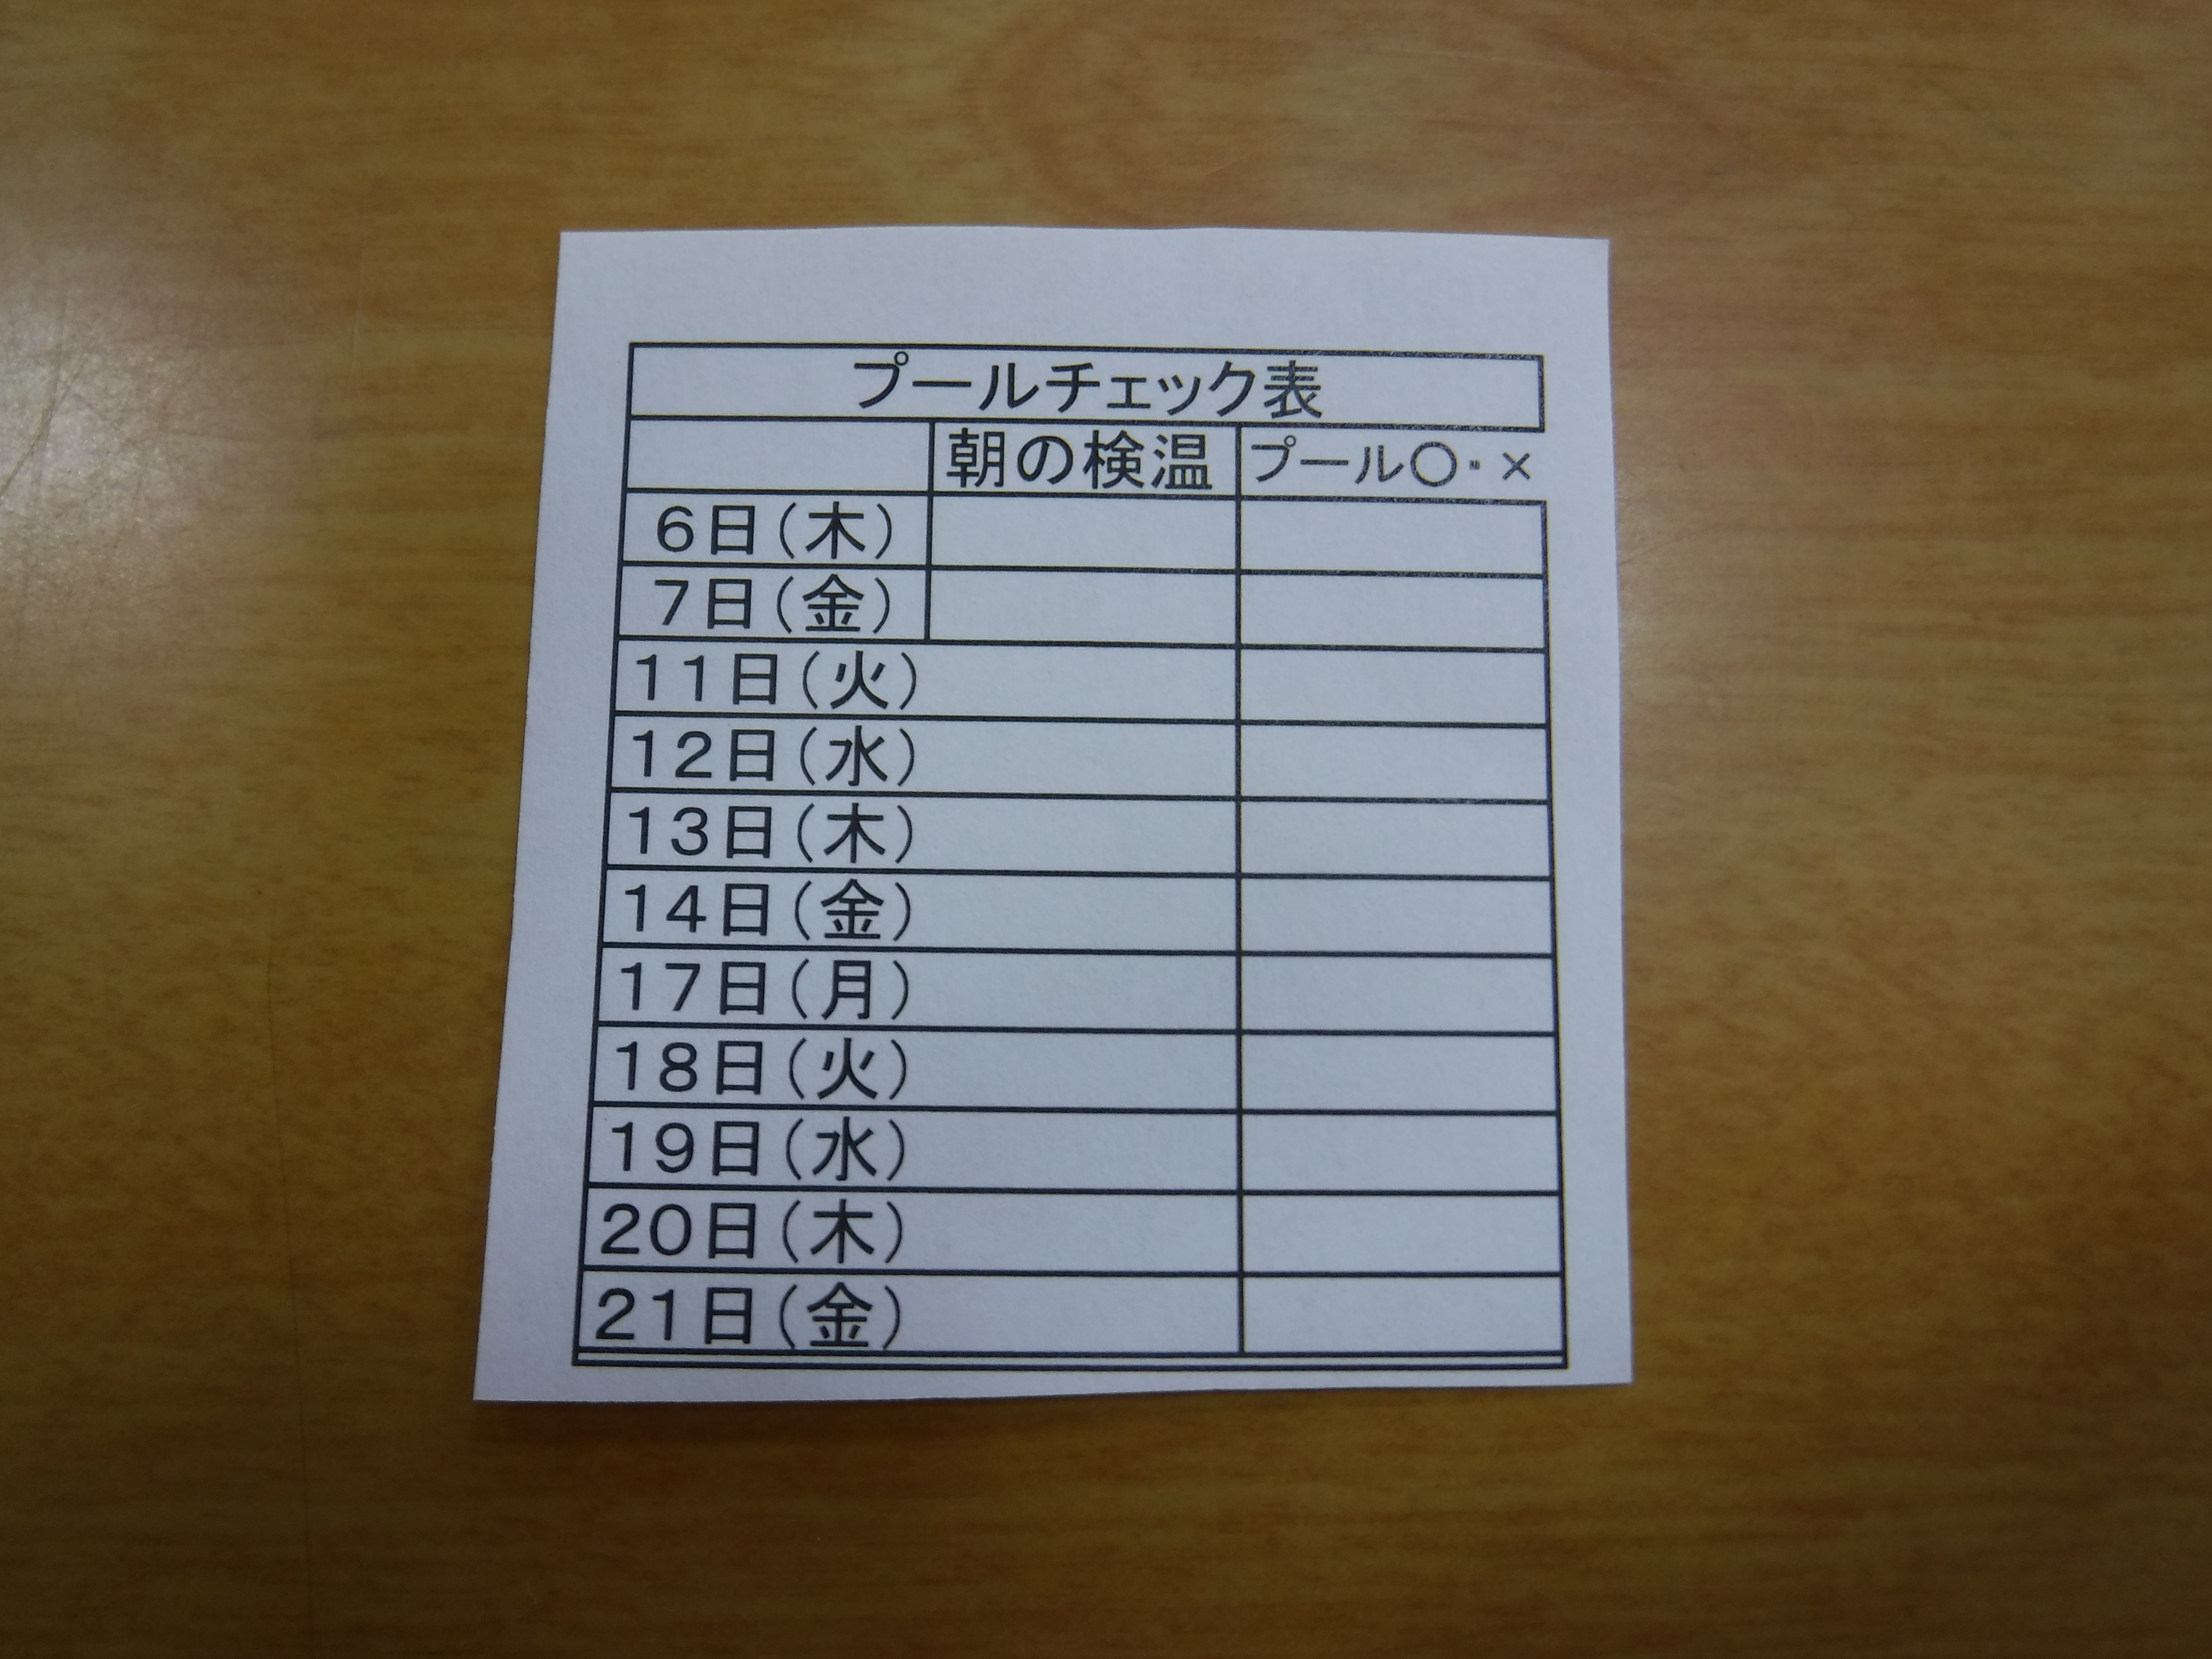 プールチェック表
朝の検温 プール〇・×
6日(木)
7日(金)
11日(火)
12日(水)
13日(木)
14日(金)
17日(月)
18日(火)
19日(水)
20日(木)
21日(金)